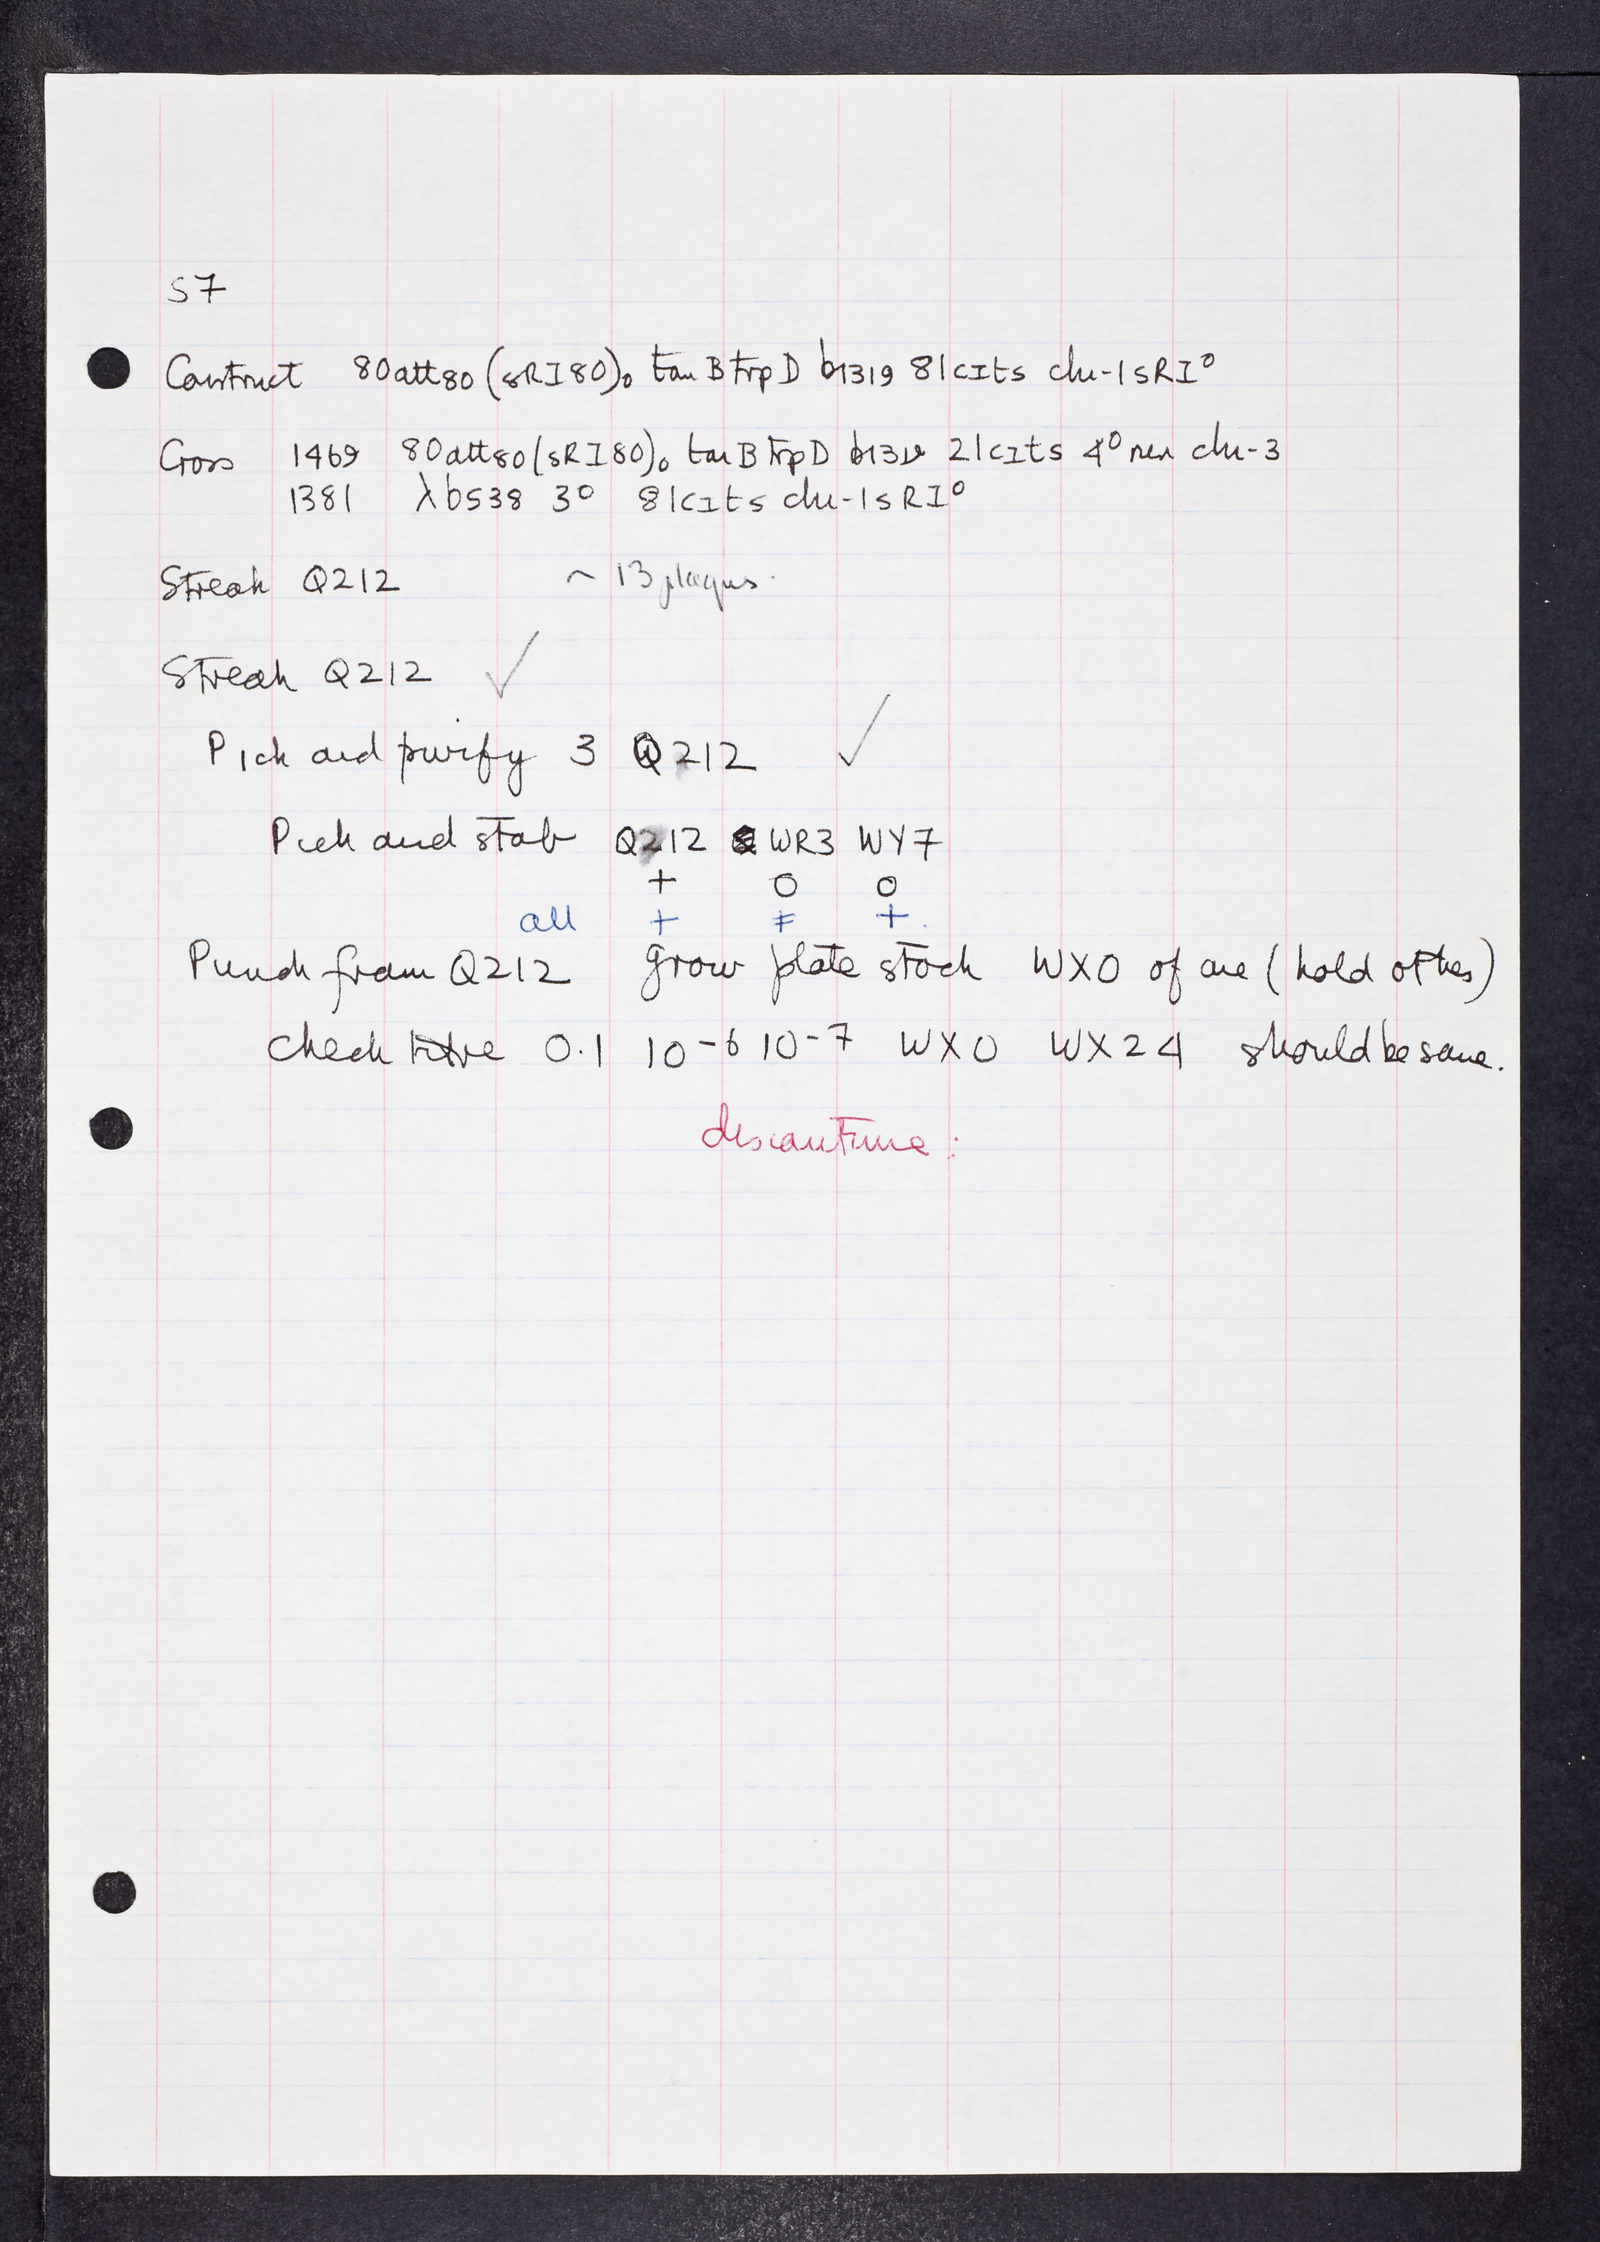 S7
Construct 80att80 (sRI80)₀ ton B trp D b1319 81cIts chi-1 sRI⁰
Cross 1469 80att80 (sRI80)₀ ton B trp D 21cIts 4⁰ nin chi-3
1381 λb538 3⁰ 81cIts chi-1 sRI⁰
Streak Q212 ~ 13 plaques.
Streak Q212 ✓
Pick and purify 3 Q212 ✓
Pick and stab Q212 WR3 WY7
+ O O
all + ‡ +
Punch from Q212 grow plate stock WX0 of one (hold others)
check titre 0.1 10-6 10-7 WX0 WX24 should be same.
discontinue: